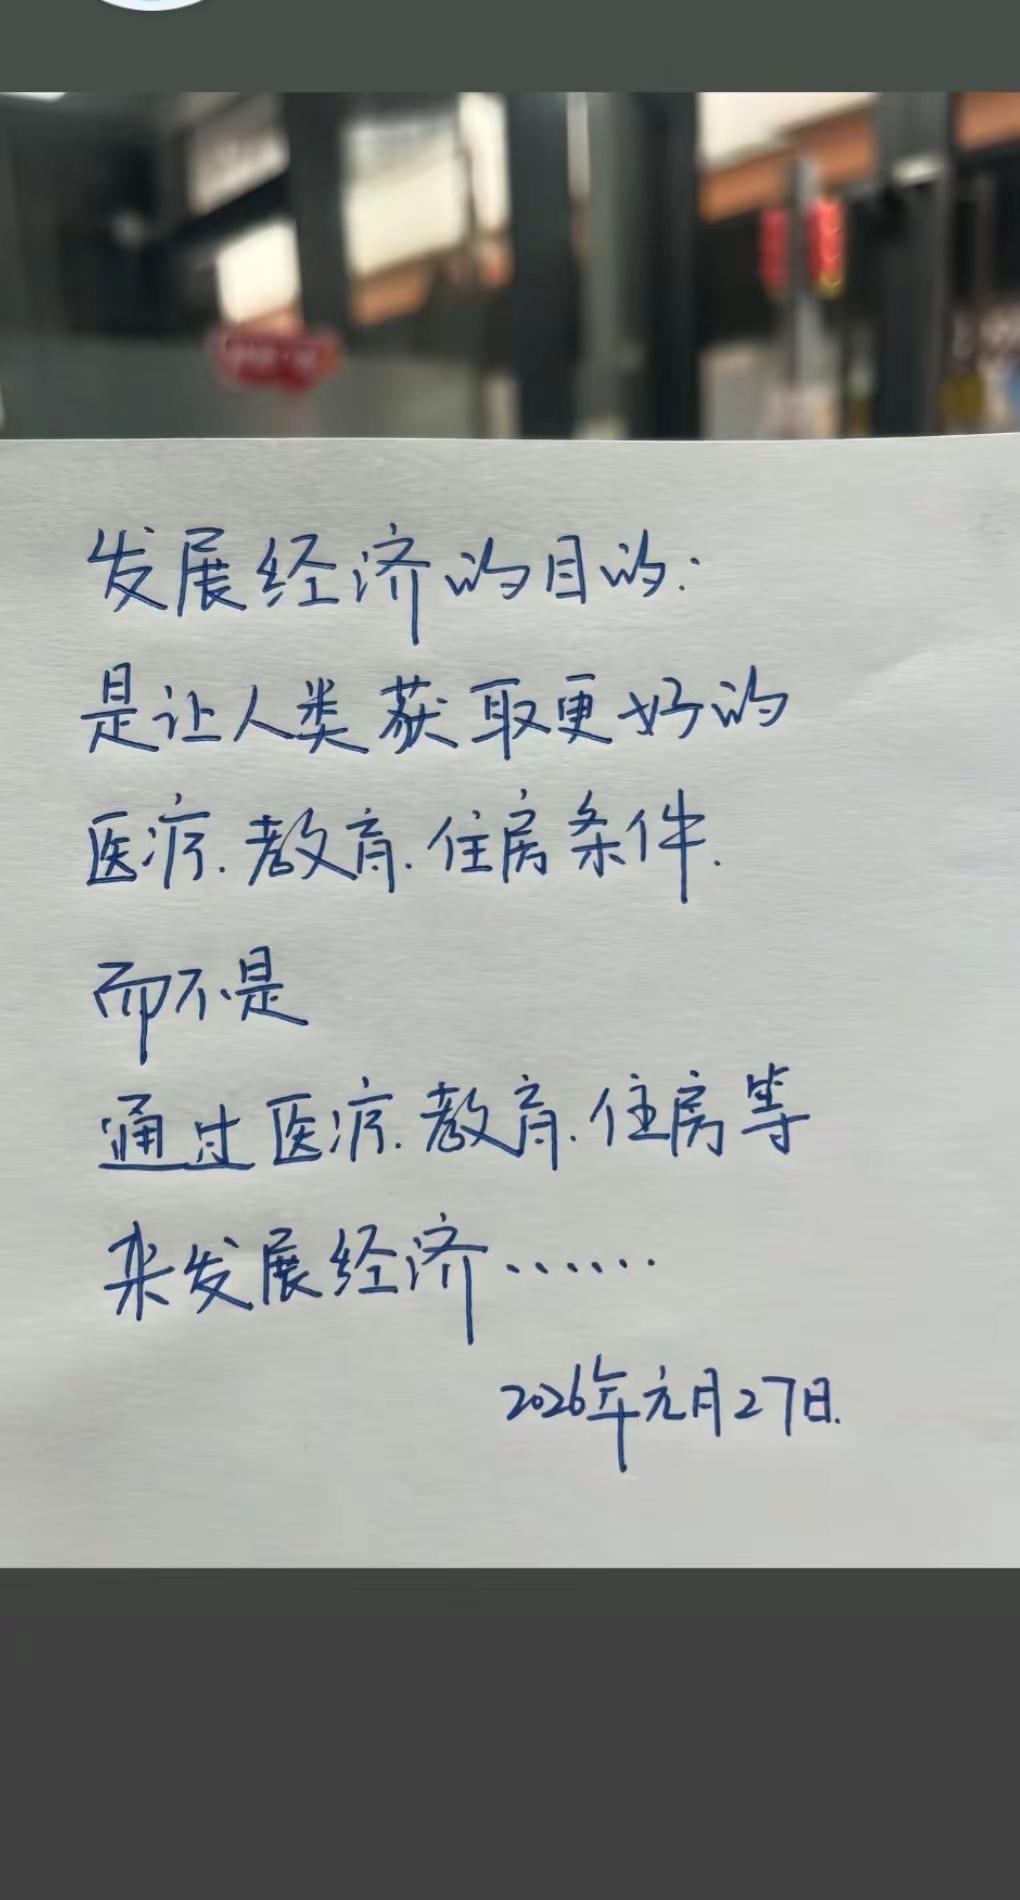 发展经济的目的：
是让人类获取更好的
医疗.教育.住房条件.
而不是
通过医疗.教育.住房等
来发展经济……
2026年元月27日.